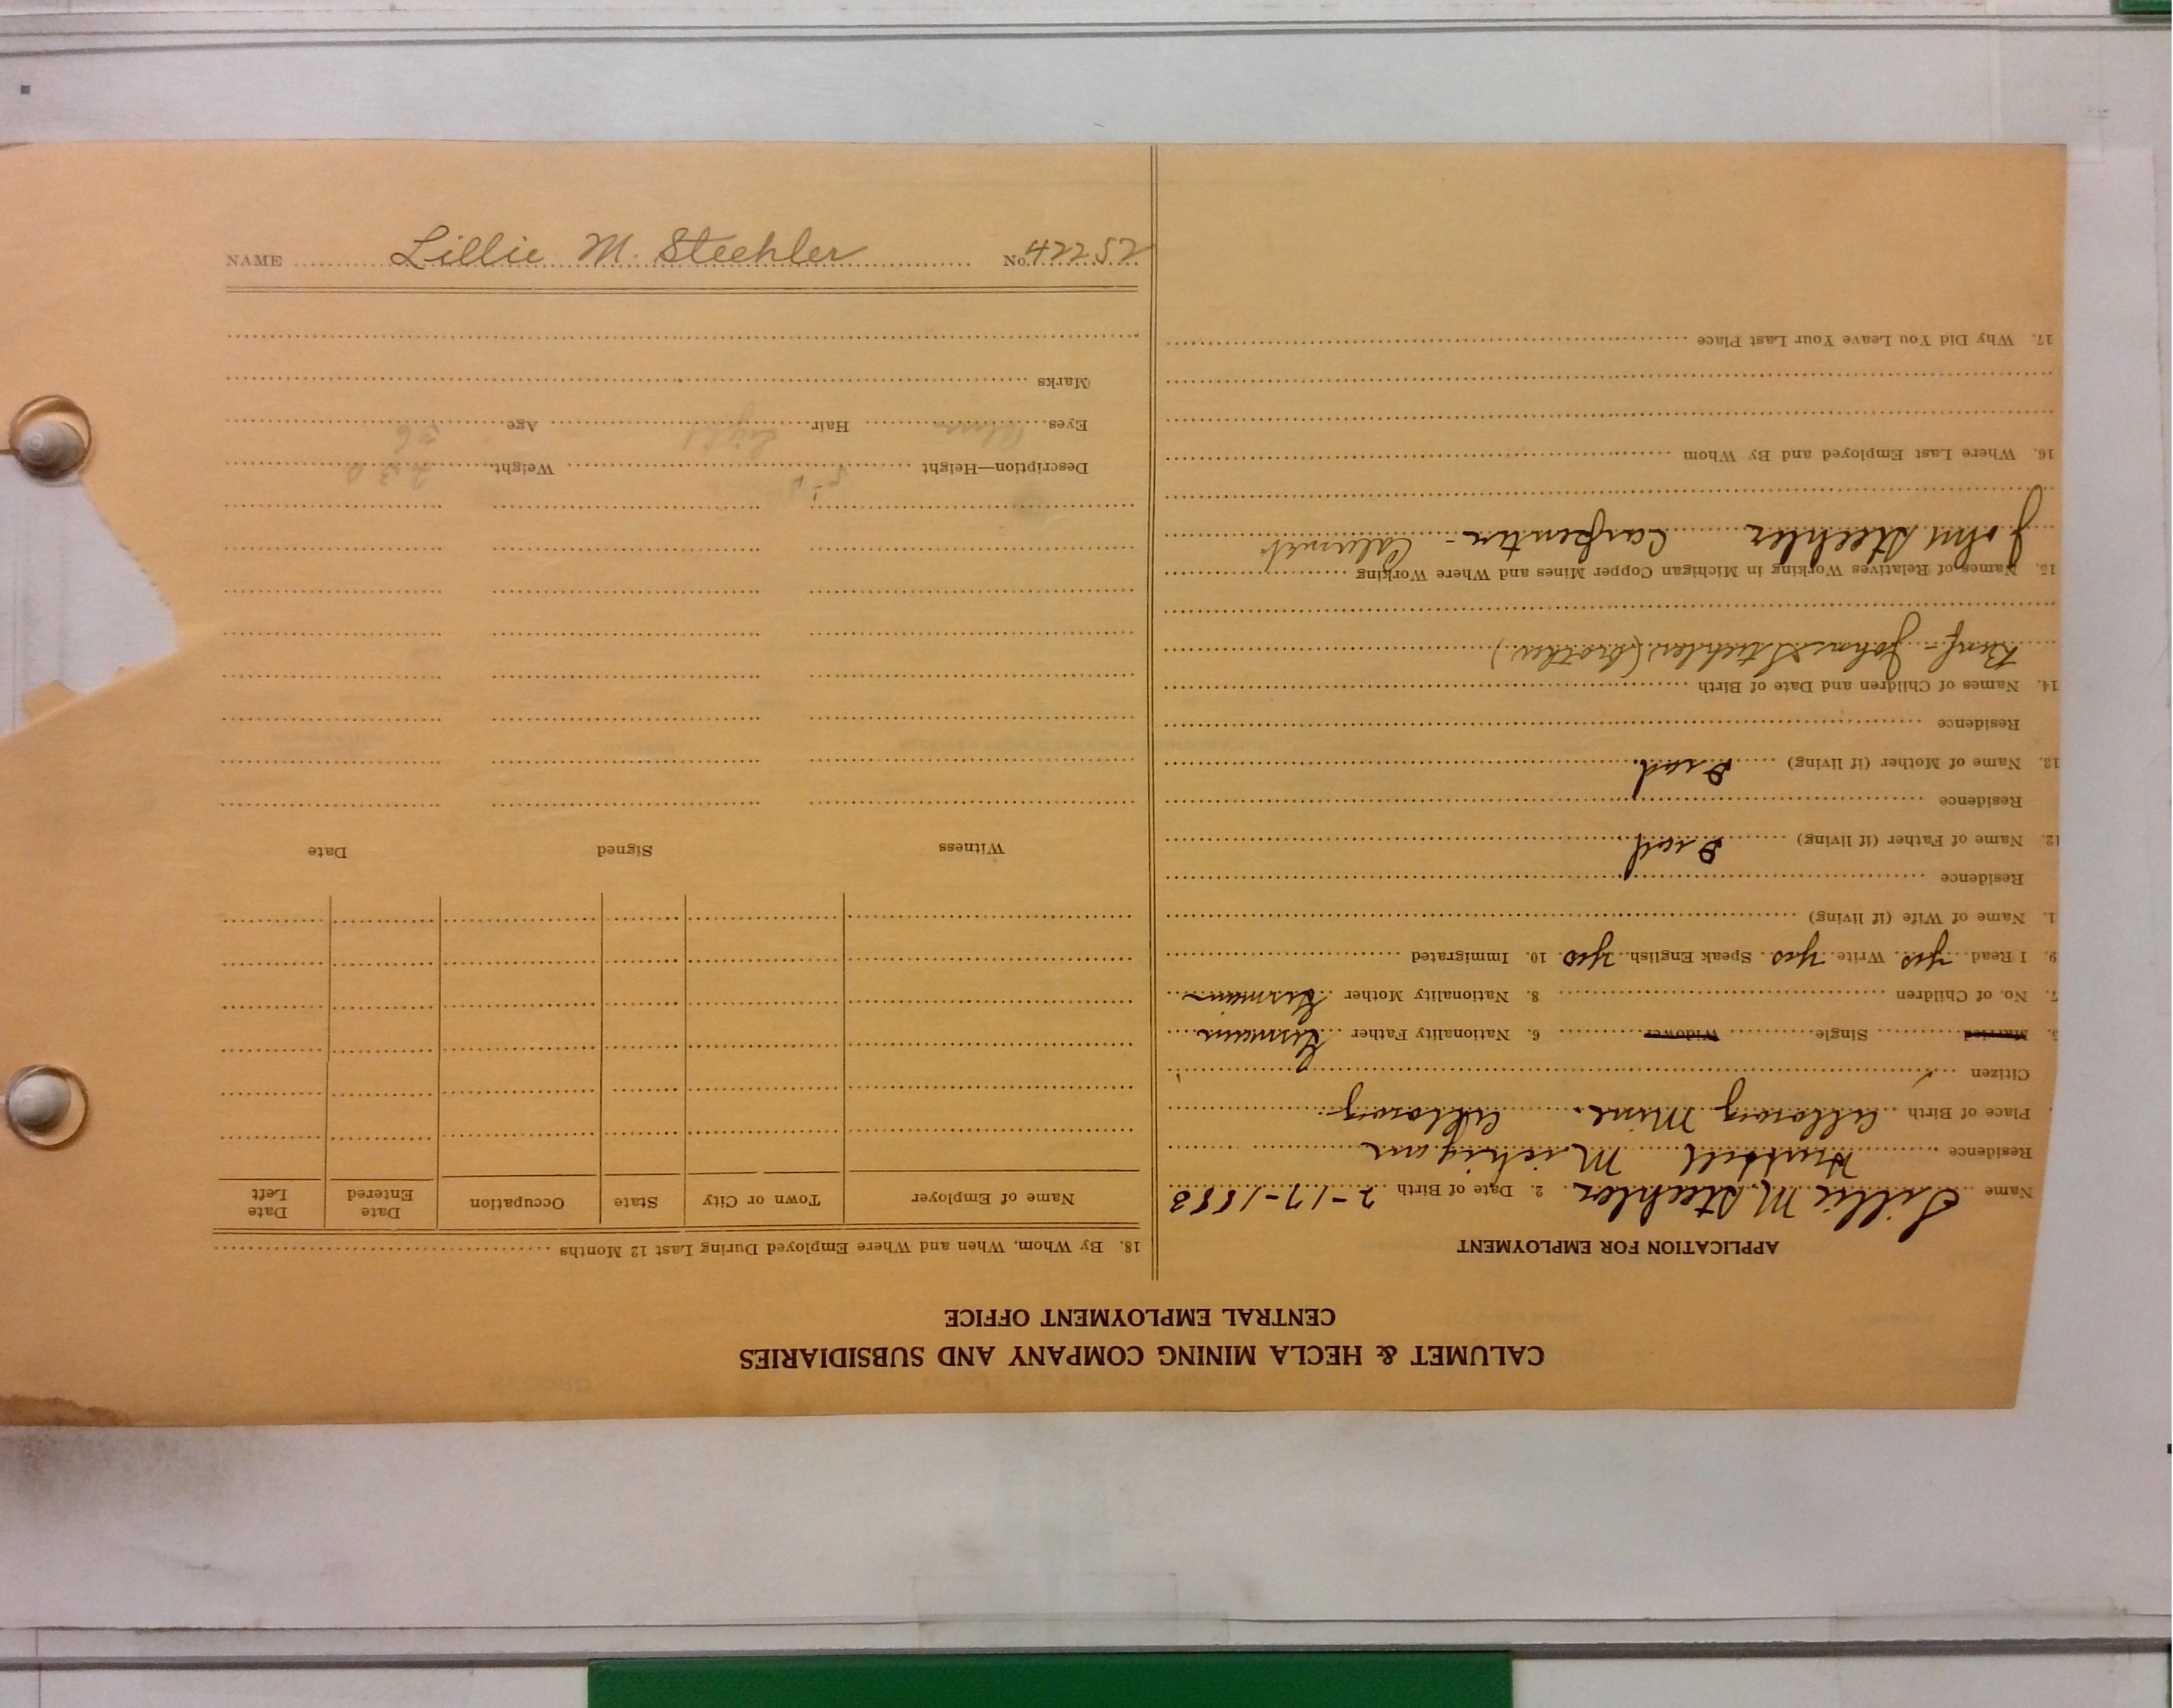 CALUMET & HECLA MINING COMPANY AND SUBSIDIARIES
CENTRAL EMPLOYMENT OFFICE
APPLICATION FOR EMPLOYMENT
Name Lillie M. Steehler 2. Date of Birth 2-17-1883
Residence Hubbell Michigan
Place of Birth Allouez Mine. Allouez
Citizen
5. Married Single Widower 6. Nationality Father German
7. No. of Children 8. Nationality Mother German
9. I Read yes Write yes Speak English yes 10. Immigrated
1. Name of Wife (if living)
Residence
12. Name of Father (if living) Dead
Residence
13. Name of Mother (if living) Dead
Residence
14. Names of Children and Date of Birth
Benf - John Steehler (brother)
15. Names of Relatives Working in Michigan Copper Mines and Where Working
John Steehler Carpenter - Calumet
16. Where Last Employed and By Whom
17. Why Did You Leave Your Last Place
18. By Whom, When and Where Employed During Last 12 Months
Name of Employer Town or City State Occupation Date Entered Date Left
Witness Signed Date
Description—Height Weight 230
Eyes Blue Hair Light Age
Marks
NAME Lillie M. Steehler No. 42252